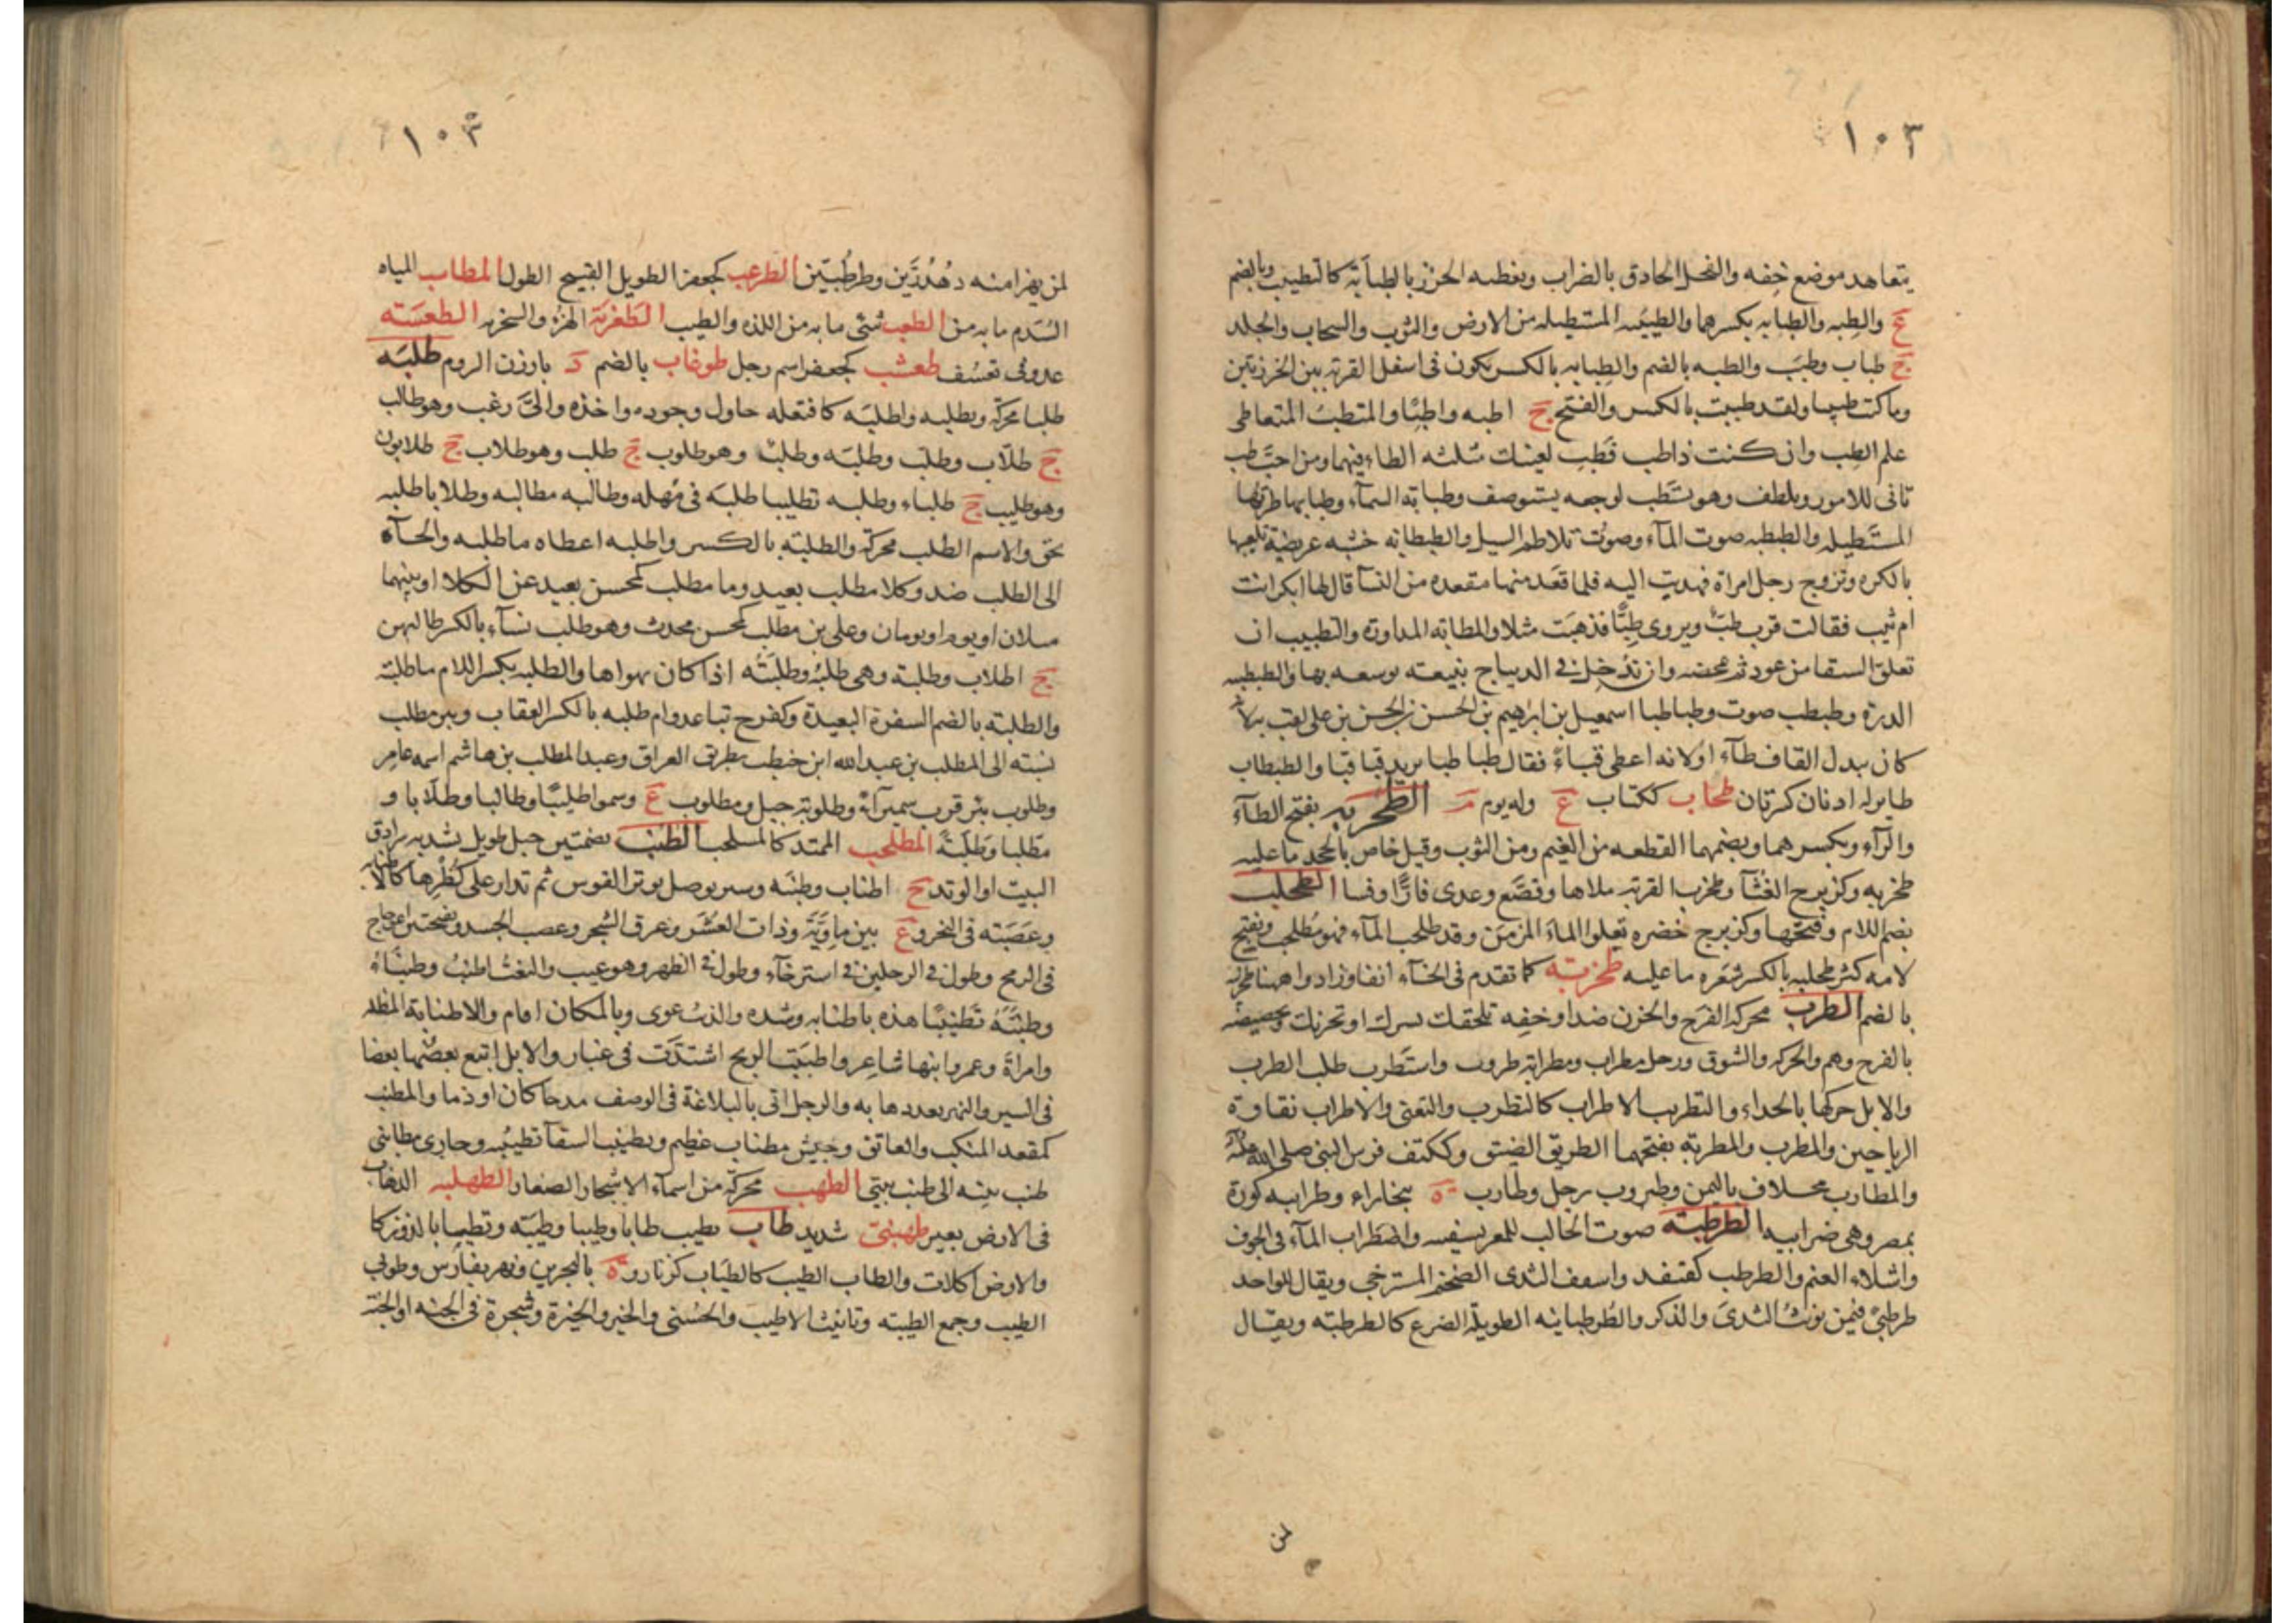 ١٠٣
يتعاهد موضع خفه والفحل الحاذق بالضراب وتغطيه الخرز بالطبابة كالتطبيب وبالضم
ع والطبه والطبابه بكسرهما والطبيبه المستطيله من الارض والثوب والسحاب والجلد
ج طباب وطبب والطبه بالضم والطبابه بالكسر يكون في اسفل القربة بين الخرزتين
وما كنت طبيبا ولقد طببت بالكسر والفتح ج اطبه واطبا والمتطبب المتعاطى
علم الطب وان كنت ذا طب فطب لعينك مثلثه الطاء فيهما ومن احب طب
تانى للامور وتلطف وهو يستطب لوجعه يستوصف وطبابة السماء وطبابها طرتها
المستطيله والطبطبه صوت الماء وصوت تلاطم السيل والطبطابه خشبه عريضة تلعب بها
بالكره وتزوج رجل امراة فهديت اليه فلما قعد منها مقعده من النسا قال لها ابكر انت
ام ثيب فقالت قرب طب ويروى طبا فذهبت مثلا والمطابه المداورة والتطبيب ان
تعلق السقا من عود ثم تمخضه وان تدخل في الديباج بنيقه توسعه بها والطبطبيه
الدرة وطبطب صوت وطباطبا اسمعيل بن ابرهيم بن الحسن بن الحسن بن على لقب به لانه
كان يبدل القاف طاء او لانه اعطى قباء فقال طبا طبا يريد قبا قبا والطبطاب
طاير له اذنان كبرتان طحاب ككتاب ع وله يوم م الطحربه بفتح الطاء
والراء وبكسرهما وبضمهما القطعه من الغيم ومن الثوب وقيل خاص بالجحد ما عليه
طحربه وكزبرج الغثا وطحرب القربة ملاها وقصع وعدى فارا وفسا الطحلب
بضم اللام وفتحها وكزبرج خضره تعلوا الماء المزمن وقد طحلب الماء فهو مطحلب وتفتح
لامه كثر طحلبه بالكسر شعره ما عليه طخربة كما تقدم في الحاء انفا وزادوا ههنا طخربه
بالضم الطرب محركه الفرح والحزن ضد او خفه تلحقك تسرك او تحزنك وتخصيصه
بالفرح وهم والحركه والشوق ورجل مطراب ومطرابة طروب واستطرب طلب الطرب
والابل حركها بالحداء والتطريب الاطراب كالتطرب والتغنى والاطراب نقاوة
الرياحين والمطرب والمطربة بفتحهما الطريق الضيق وككتف فرس النبى صلى الله عليه
والمطارب مخلاف باليمن وطيروب رجل وطارب ة ببخاراء وطرابيه كورة
بمصر وهى ضرابيه الطرطبه صوت الحالب للمعز بشفتيه واضطراب الماء في الجوف
واشلاء الغنم والطرطب كقنفذ واسقف الثدى الضخم المسترخي ويقال للواحد
طرطبى فيمن يونث الثدى والذكر والطرطبانيه الطويلة الضرع كالطرطبه ويقال
لمن
١٠٣
لمن يهزا منه دهدرين وطرطبين الطرعب كجعفر الطويل القبيح الطول المطاب المياه
السدم ما به من الطعب شئ ما به من اللذه والطيب الطعزبة الهزء والسخريه الطعسبه
عدو في تعسف طعشب كجعفر اسم رجل طوغاب بالضم د بارزن الروم طلبه
طلبا محركة وتطلبه واطلبه كافتعله حاول وجوده واخذه والى رغب وهو طالب
ج طلاب وطلب وطلبه وطلب وهو طلوب ج طلب وهو طلاب ج طلابون
وهو طليب ج طلباء وطلبه تطليبا طلبه في مهله وطالبه مطالبه وطلابا طلبه
بحق والاسم الطلب محركة والطلبه بالكسر واطلبه اعطاه ما طلبه والجاه
الى الطلب ضد وكلا مطلب بعيد وما مطلب كمحسن بعيد عن الكلا او بينهما
ميلان او يوم او يومان وعلى بن مطلب كمحسن محدث وهو طلب نساء بالكسر طالبهن
ج اطلاب وطلبة وهى طلبه وطلبته اذا كان يهواها والطلبه بكسر اللام ما طلبته
والطلبة بالضم السفرة البعيدة وكفرح تباعد وام طلبه بالكسر العقاب وبير مطلب
نسبته الى المطلب بن عبدالله ابن حنطب بطريق العراق وعبدالمطلب بن هاشم اسمه عامر
وطلوب بئر قرب سميراء وطلوبة جبل ومطلوب ع وسموا طليبا وطالبا وطلابا و
مطلبا وطلبة المطلحب الممتد كالمسلحب الطنب بضمتين حبل طويل يشد به سرادق
البيت او الوتد ج اطناب وطنبه وسير يوصل بوتر القوس ثم تدار على كظرها كالاطنابه
وعصبته في النحر وع بين ماوية وذات العشر وعرق الشجر وعصب الجسد وبفتحتين اعوجاج
في الرمح وطول في الرجلين في استرخاء وطول في الظهر وهو عيب والنعت اطنب وطنباء
وطنبه تطنيبا مده باطنابه وشده والذئب عوى وبالمكان اقام والاطنابة المظله
وامراة وعمرو ابنها شاعر واطنبت الريح اشتدت في غبار والابل اتبع بعضها بعضا
في السير والنهر بعد ذهابه والرجل اتى بالبلاغة في الوصف مدحا كان او ذما والمطنب
كمقعد المنكب والعاتق وجيش مطناب عظيم وتطنيب السقا تطبيبه وجارى مطانبى
طنب بيته الى طنب بيتى الطهب محركة من اسماء الاشجار الصغار الطهلبه الذهاب
في الارض بعير طهنبى شديد طاب يطيب طابا وطيبا وطيبه وتطيابا لذ وزكا
والارض اكلات والطاب الطيب كالطياب كزنار وة بالبحرين ونهر بفارس وطوبى
الطيب وجمع الطيبه وتانيث الاطيب والحسنى والخير والخيرة وشجرة في الجنه او الجنة